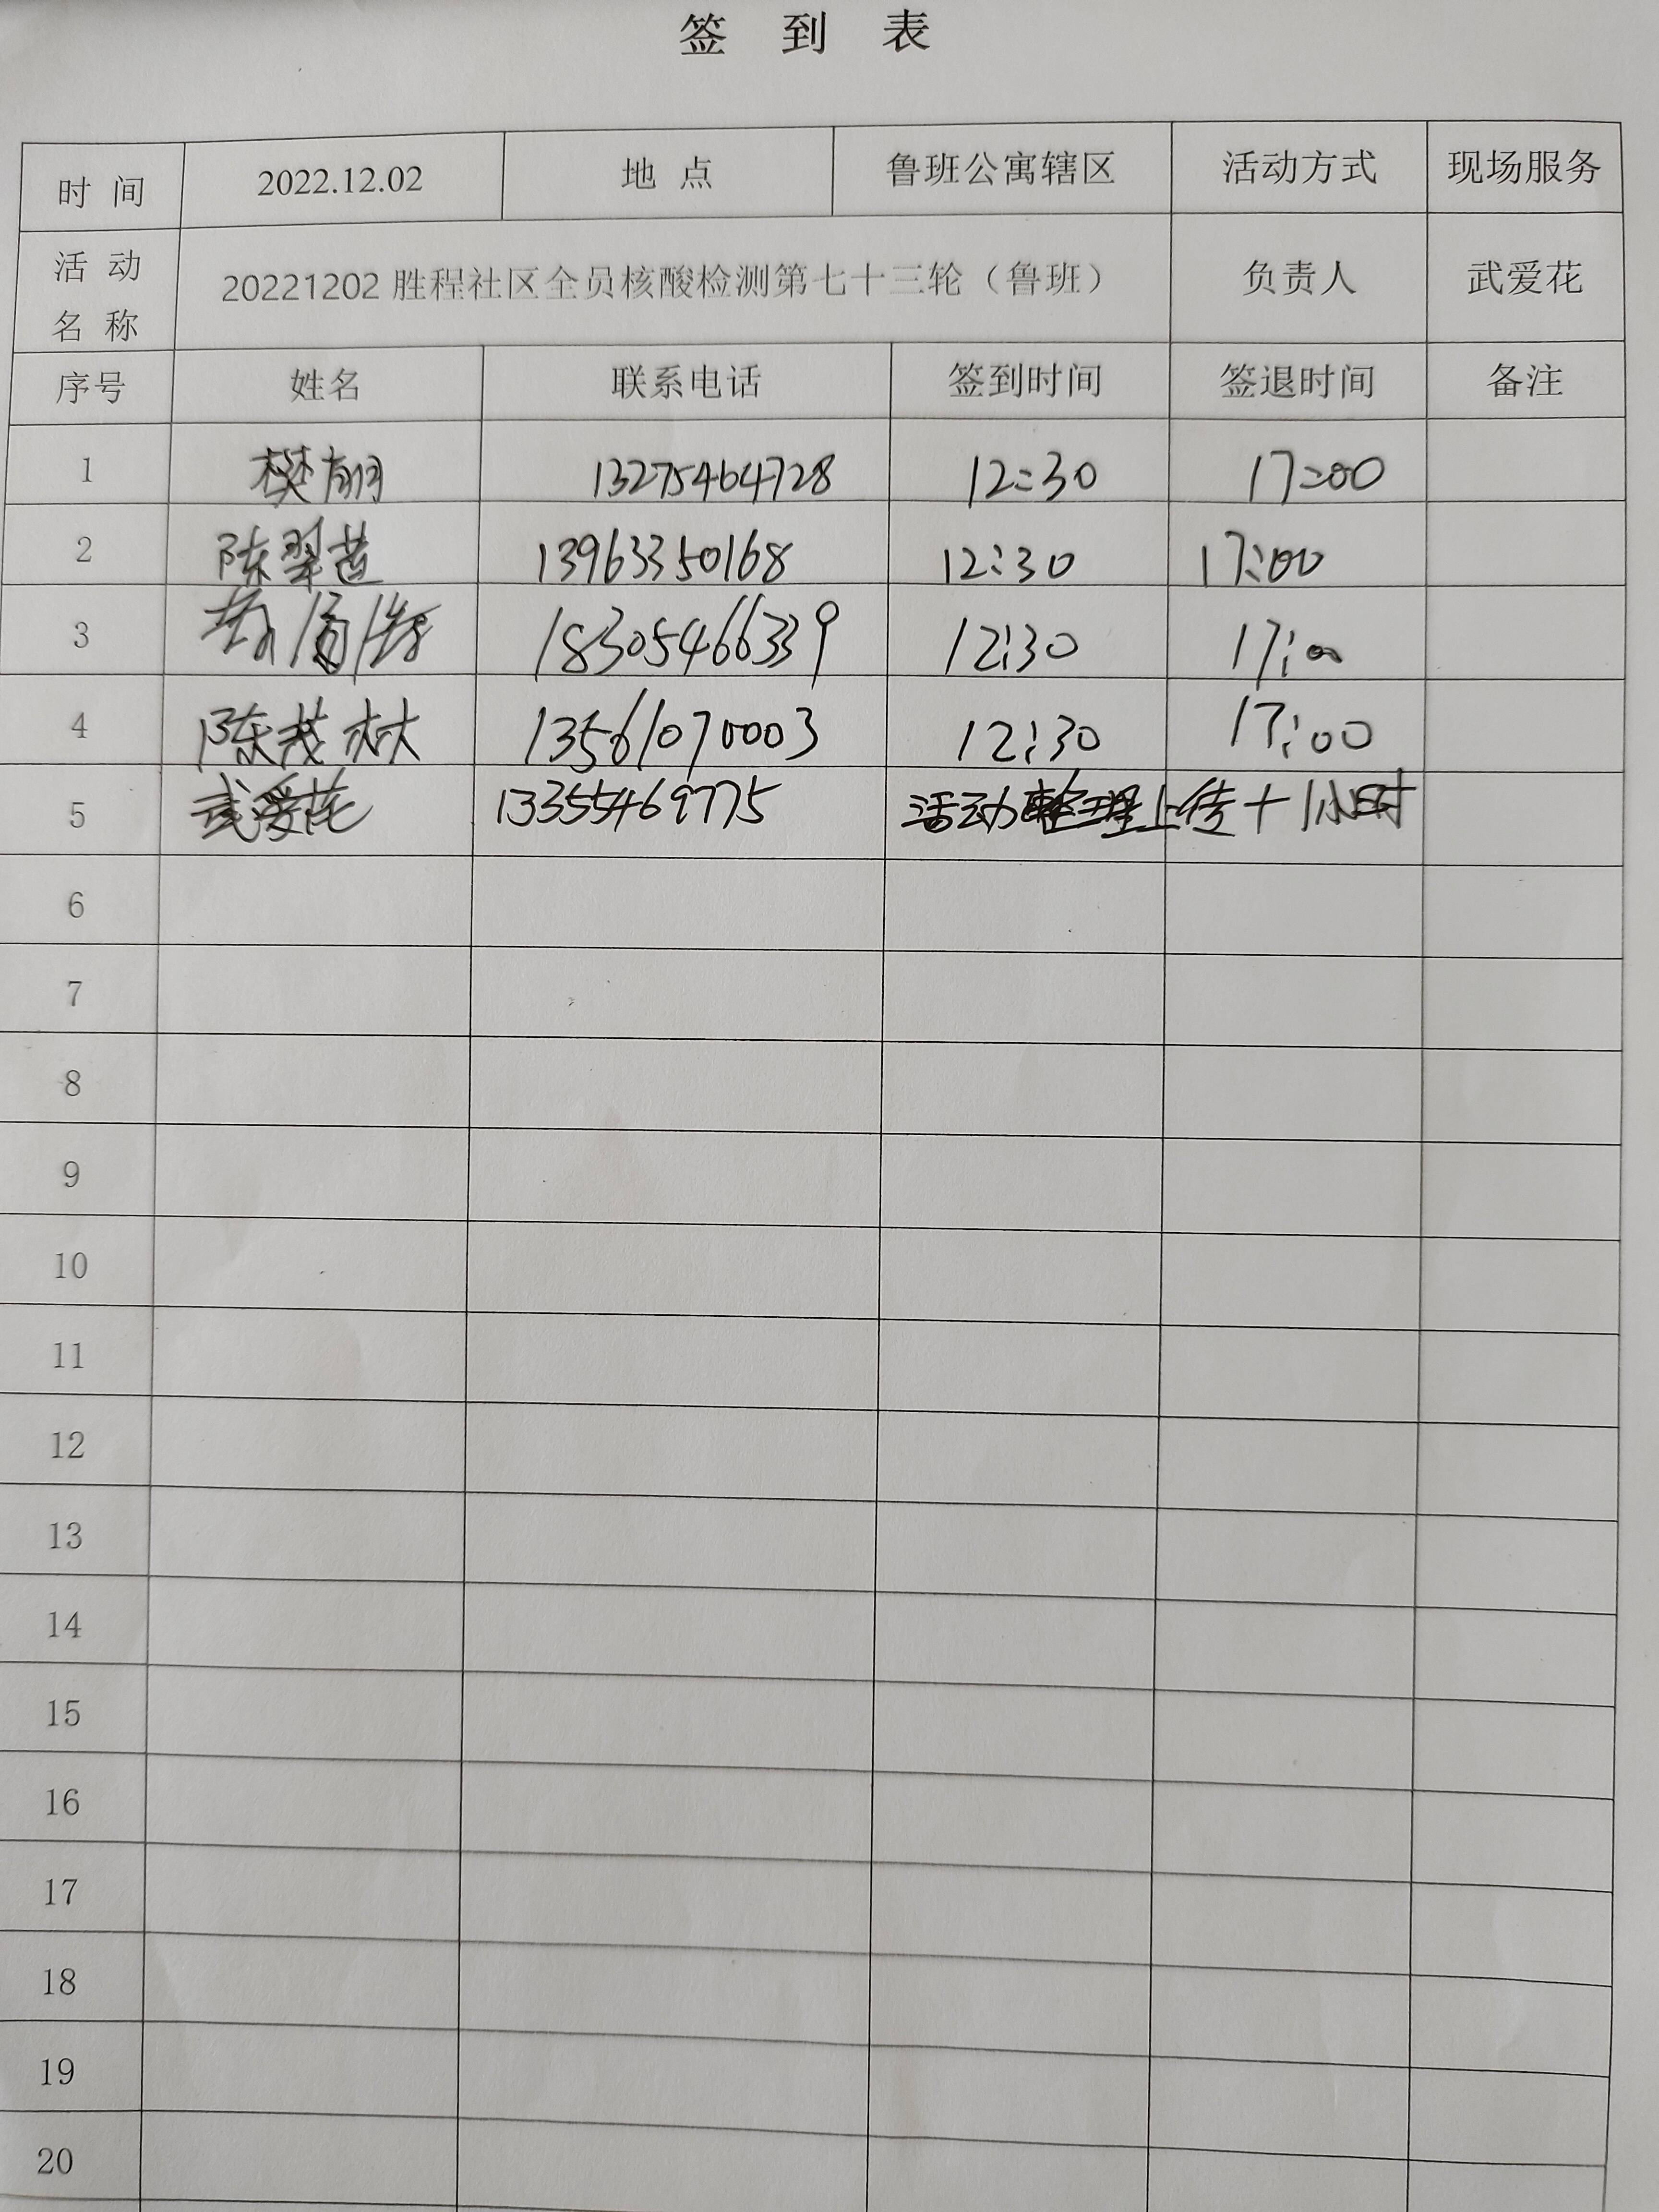 签 到 表
时 间 2022.12.02 地 点 鲁班公寓辖区 活动方式 现场服务
活 动 名 称 20221202 胜程社区全员核酸检测第七十三轮（鲁班） 负责人 武爱花
序号 姓名 联系电话 签到时间 签退时间 备注
1 樊 13275464728 12:30 17:00
2 陈翠 13963350168 12:30 17:00
3 18305466339 12:30 17:00
4 陈茂林 13561070003 12:30 17:00
5 武爱花 13355469775 活动整理上传+1小时
6
7
8
9
10
11
12
13
14
15
16
17
18
19
20